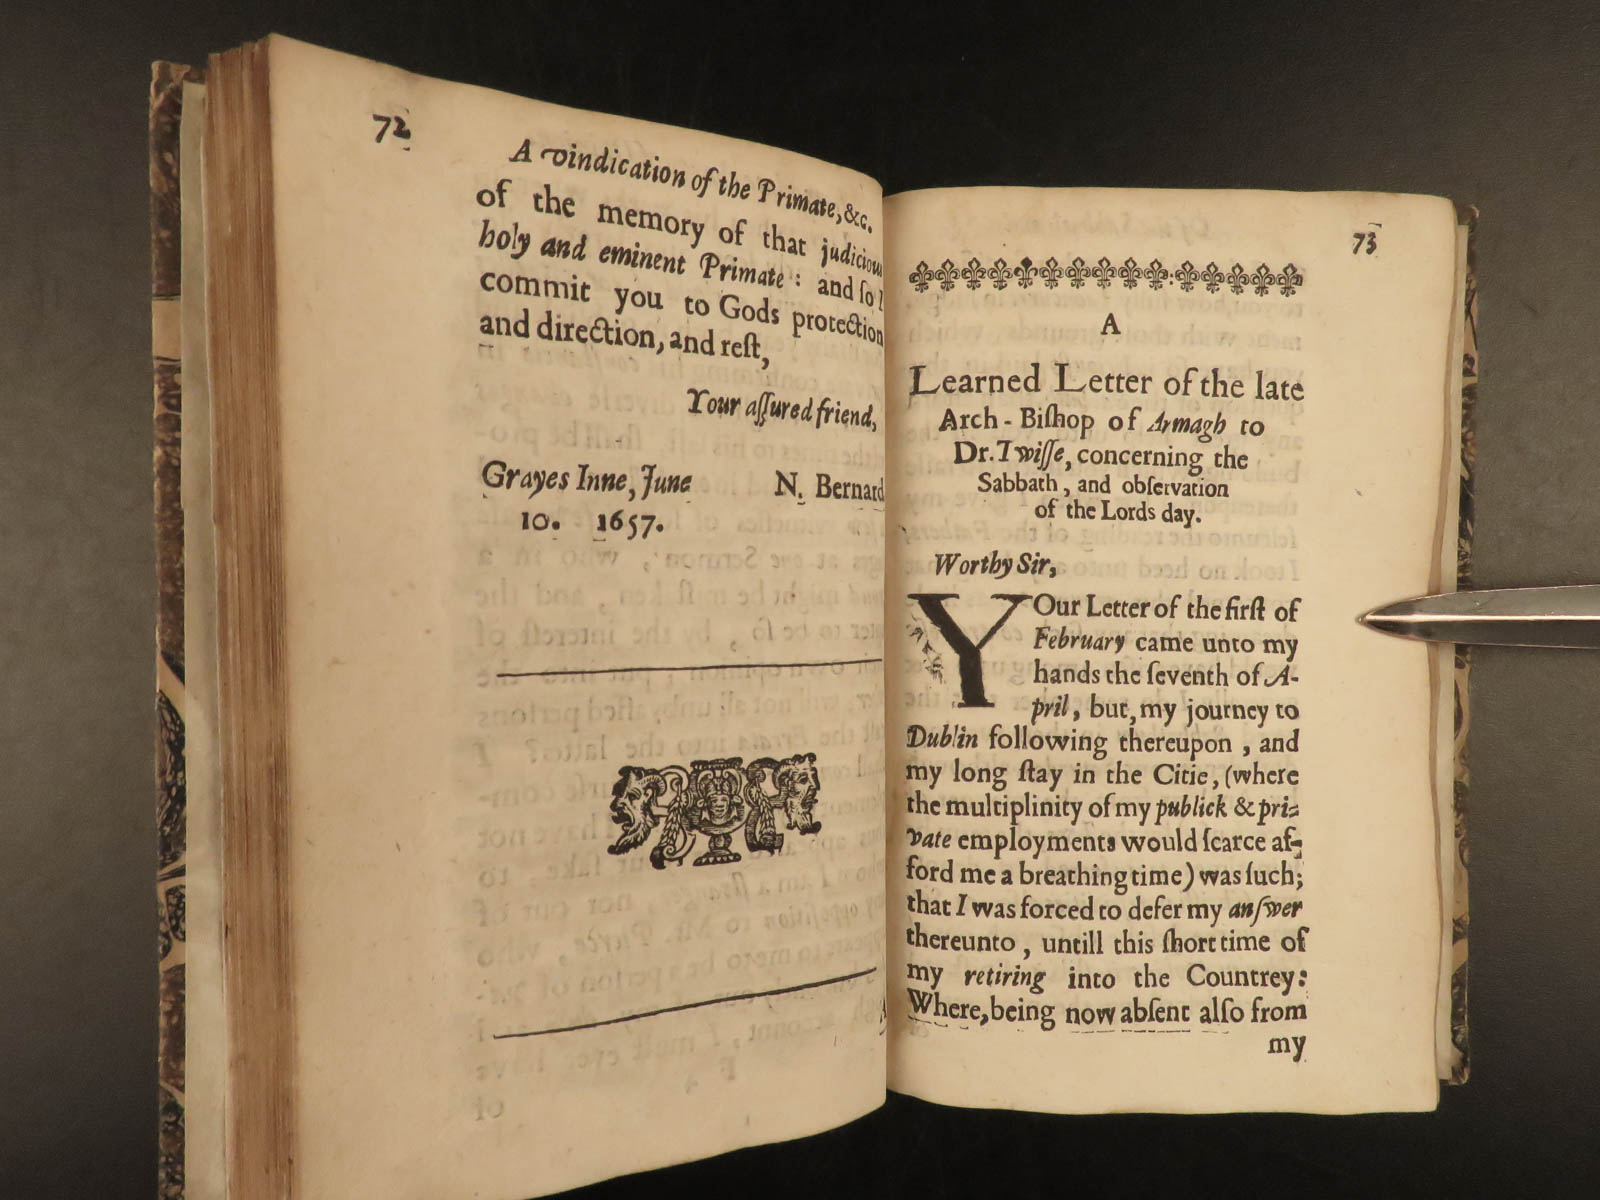 72
A vindication of the Primate, &c.
of the memory of that judiciou
holy and eminent Primate: and ſo I
commit you to Gods protection
and direction, and reſt,
Your aſſured friend,
Grayes Inne, June
N. Bernard
10. 1657.
73
A
Learned Letter of the late
Arch-Biſhop of Armagh to
Dr. Twiſſe, concerning the
Sabbath, and obſervation
of the Lords day.
Worthy Sir,
YOur Letter of the firſt of
February came unto my
hands the ſeventh of A-
pril, but, my journey to
Dublin following thereupon, and
my long ſtay in the Citie, (where
the multiplinity of my publick & pri-
vate employments would ſcarce af-
ford me a breathing time) was ſuch;
that I was forced to defer my anſwer
thereunto, untill this ſhort time of
my retiring into the Countrey:
Where, being now abſent alſo from
my